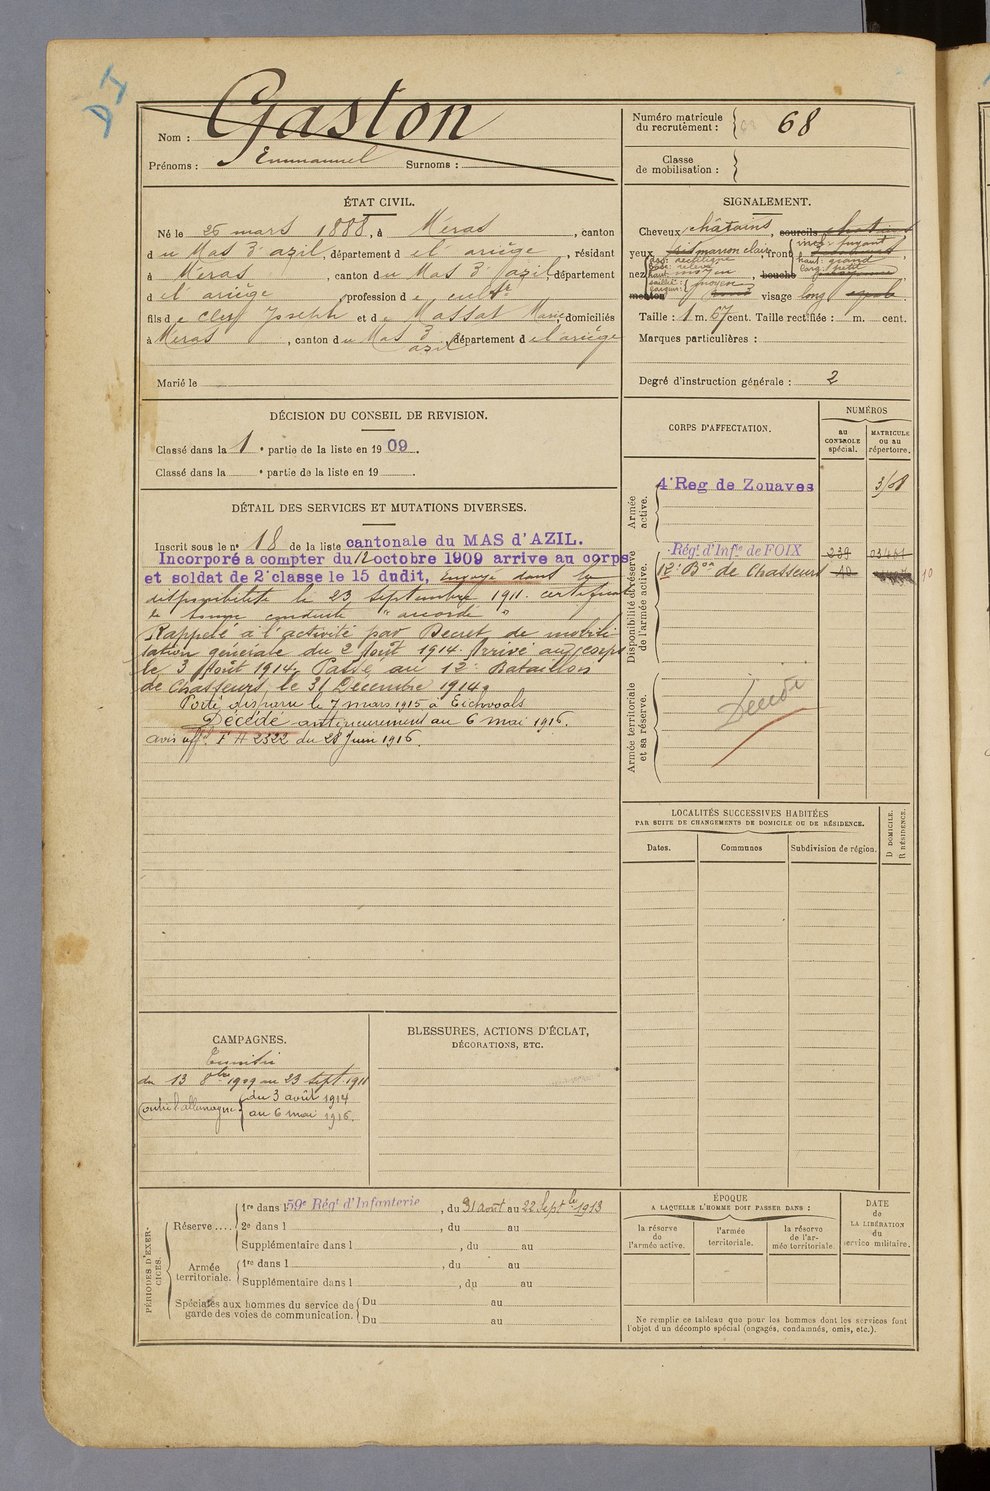 DI
Nom : Gaston
Prénoms : Emmanuel Surnoms :
Numéro matricule du recrutement : 68
Classe de mobilisation :
ÉTAT CIVIL.
Né le 26 mars 1888, à Méras, canton
du Mas d'azil, département de l'ariège, résidant
à Méras, canton du Mas d'azil département
de l'ariège, profession de cultr
fils de Clerg Joseph et de Massat Marie domiciliés
à Méras, canton du Mas d'azil, département de l'ariège
Marié le
SIGNALEMENT.
Cheveux châtains, sourcils
yeux marron clair, front
incl: fuyant
haut: grand
larg: petit
nez
dos: rectiligne
base: relevé
haut: moyen
saillie:
largeur: moyen
bouche
menton visage long
Taille : 1 m. 67 cent. Taille rectifiée : m. cent.
Marques particulières :
Degré d'instruction générale : 2
DÉCISION DU CONSEIL DE REVISION.
Classé dans la 1e partie de la liste en 1909.
Classé dans la e partie de la liste en 19 .
CORPS D'AFFECTATION.
NUMÉROS
au CONTROLE spécial.
MATRICULE ou au répertoire.
Armée active.
4e Reg de Zouaves 3108
Disponibilité et réserve de l'armée active.
Régt d'Infie de FOIX 239
12e Bon de Chasseurs 40
Armée territoriale et sa réserve.
Décédé
DÉTAIL DES SERVICES ET MUTATIONS DIVERSES.
Inscrit sous le n° 18 de la liste cantonale du MAS d'AZIL.
Incorporé à compter du 12 octobre 1909 arrive au corps
et soldat de 2e classe le 15 dudit, envoyé dans la
disponibilité le 23 septembre 1911. certificat
de bonne conduite "accordé"
Rappelé à l'activité par Décret de mobili-
sation générale du 2 Août 1914. Arrivé au corps
le 3 Août 1914. Passé au 12e Bataillon
de Chasseurs, le 31 Décembre 1914.
Porté disparu le 7 mars 1915 à Eichwoals
Décédé antérieurement au 6 mai 1916.
avis offel F H 2322 du 28 Juin 1916.
LOCALITÉS SUCCESSIVES HABITÉES
PAR SUITE DE CHANGEMENTS DE DOMICILE OU DE RÉSIDENCE.
Dates.
Communes
Subdivision de région.
D DOMICILE.
R RÉSIDENCE.
CAMPAGNES.
Tunisie
du 13 8bre 1909 au 23 sept 1911
Contre l'allemagne: du 3 août 1914
au 6 mai 1916.
BLESSURES, ACTIONS D'ÉCLAT,
DÉCORATIONS, ETC.
PÉRIODES D'EXERCICES.
Réserve....
1re dans l 59e Régt d'Infanterie, du 31 aout au 22 Septbre 1913
2e dans l , du au
Supplémentaire dans l , du au
Armée territoriale.
1re dans l , du au
Supplémentaire dans l , du au
Spéciales aux hommes du service de garde des voies de communication.
Du au
Du au
ÉPOQUE
A LAQUELLE L'HOMME DOIT PASSER DANS :
la réserve de l'armée active.
l'armée territoriale.
la réserve de l'armée territoriale.
DATE de LA LIBÉRATION du service militaire.
Ne remplir ce tableau que pour les hommes dont les services font
l'objet d'un décompte spécial (engagés, condamnés, omis, etc.).